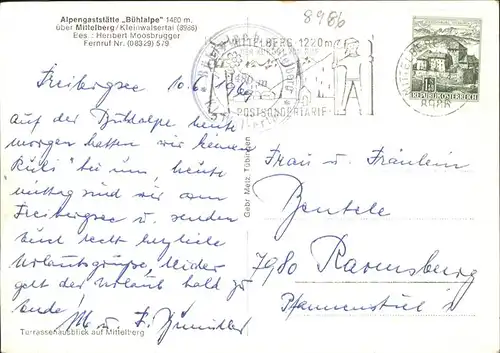 Alpengaststätte „Bühlalpe" 1480 m.
über Mittelberg/Kleinwalsertal (8986)
Bes.: Heribert Moosbrugger
Fernruf Nr. (08329) 579
8986
MITTELBERG 1220 m
POSTSONDERTARIF
REPUBLIK ÖSTERREICH
Freibergsee 10.6.1969
auf der Bühlalpe heute
morgen hatten wir keinen
"Kühi" bei uns, heute
mittag sind wir am
Freibergsee u. senden
Euch recht herzliche
Urlaubsgrüße, leider
geht der Urlaub bald zu
Ende!
M. u. F.
Terrassenausblick auf Mittelberg
Gebr. Metz, Tübingen
Frau u. Fräulein
Bentele
7980 Ravensburg
Pfannenstiel